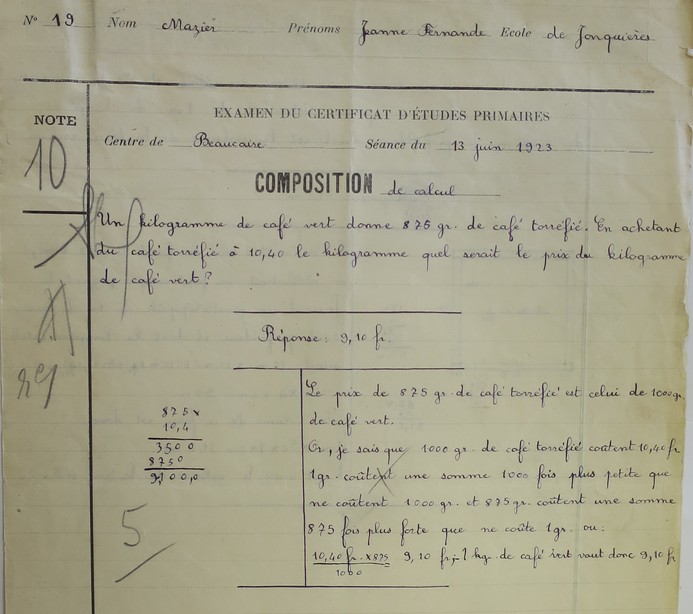 N° 19 Nom Mazier Prénoms Jeanne Fernande Ecole de Jonquières
NOTE
10
EXAMEN DU CERTIFICAT D'ÉTUDES PRIMAIRES
Centre de Beaucaire Séance du 13 juin 1923
COMPOSITION de calcul
Un kilogramme de café vert donne 875 gr. de café torréfié. En achetant
du café torréfié à 10,40 le kilogramme quel serait le prix du kilogramme
de café vert?
Réponse: 9,10 fr.
875 x
10,4
3500
8750
9,100,0
5
Le prix de 875 gr. de café torréfié est celui de 1000 gr.
de café vert.
Or, je sais que 1000 gr. de café torréfié coûtent 10,40 fr
1 gr. coûtent une somme 1000 fois plus petite que
ne coûtent 1000 gr. et 875 gr. coûtent une somme
875 fois plus forte que ne coûte 1 gr. ou:
10,40 fr. x 875 9,10 fr; - 1 kg. de café vert vaut donc 9,10 fr
1000